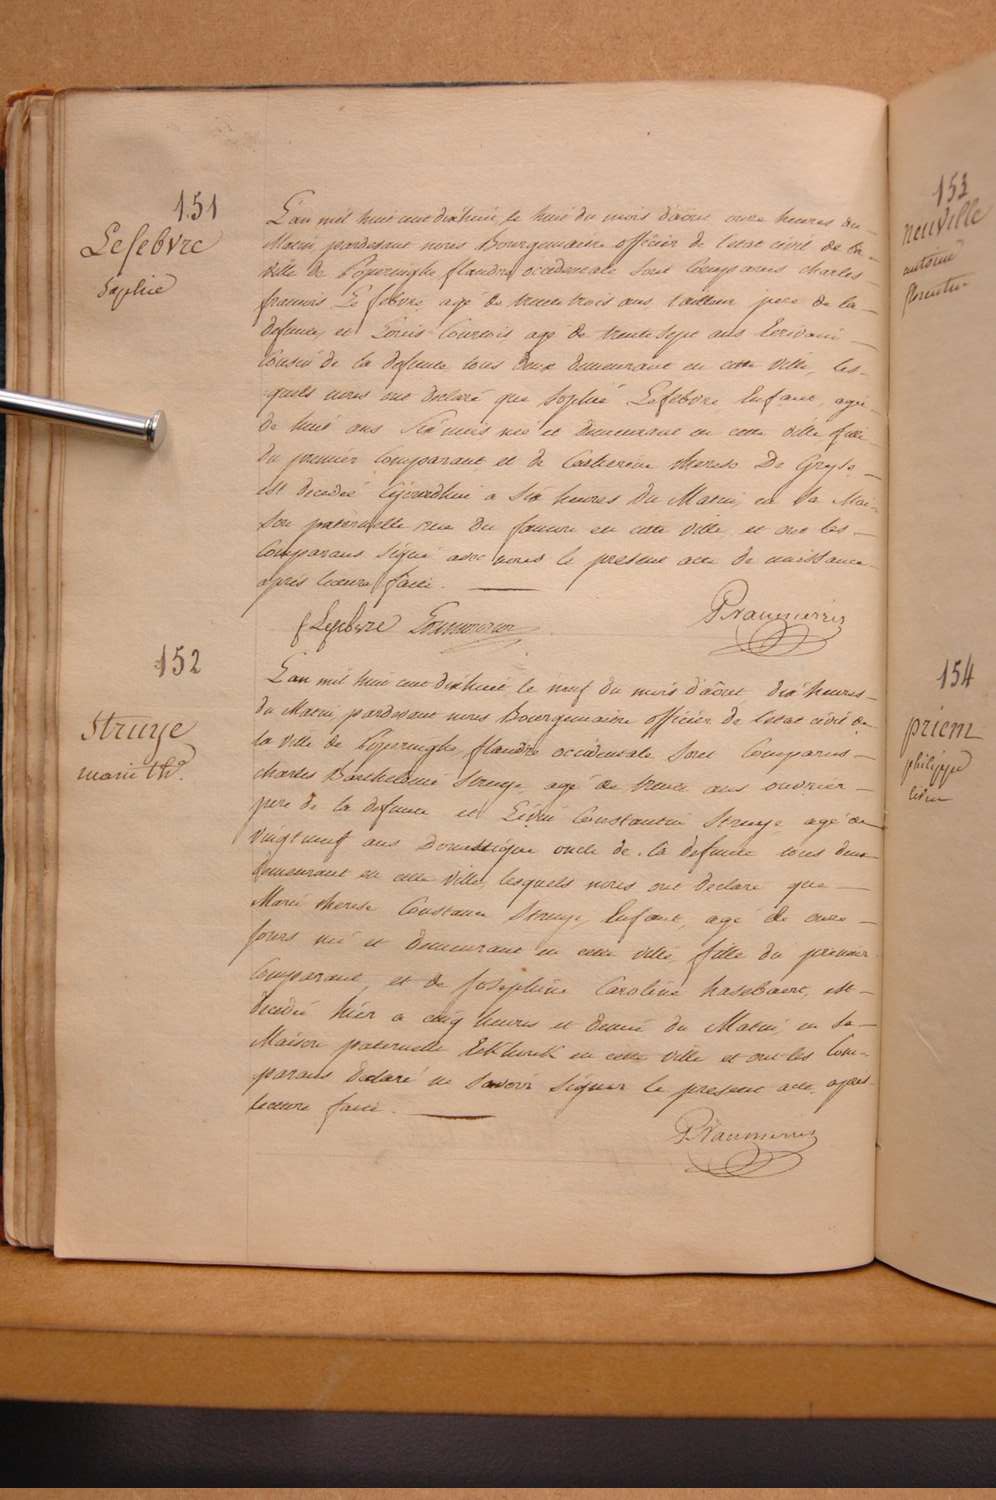 151
Lefebvre
Sophie
L'an mil huit cent dixhuit, le huit du mois d'aôut onze heures du
Matin, pardevant nous Bourgemaitre officier de l'etat civil de la
ville de Poperinghe flandre occidentale sont Comparus charles
francois Le febvre agé de trente trois ans, tailleur pere de la
defunte, et Louis agé de trente sept ans Ecrivain
Cousin de la defunte tous deux demeurant en cette ville, les-
quels nous ont declaré que Sophie Lefebvre, Enfant, agé
de huit ans Six mois né et demeurant en cette ville fille
du premier Comparant et de Catherine therese De
est decedé a Six heures du Matin, en Sa Mai-
son paternelle rue du en cette ville, et ont les
Comparans Signé avec nous le present acte de naissance
apres lecture faite.
f Lefebvre
152
Struye
marie th.
L'an mil huit cent dixhuit le neuf du mois d'aôut, dix heures
du Matin, pardevant nous Bourgemaitre officier de l'etat civil de
la ville de Poperinghe, flandre occidentale sont Comparus
charles Barthelomé Struye, agé de trente ans ouvrier
pere de la defunte et Livin Constantin Struye, agé de
vingt neuf ans Domestique oncle de la defunte tous deux
demeurant en cette ville, lesquels nous ont declare que
Marie therese Constance Struye, Enfant, agé de onze
jours né et demeurant en cette ville, fille du premier
Comparant, et de Josephine Caroline hasebaert, est
decedé hier a cinq heures et demie du Matin, en Sa
Maison paternelle en cette ville et ont les Com-
parans declaré ne Savoir Signer le present acte, apres
lecture faite.
153
neuville
antoine
florentin
154
priem
philippe
livin